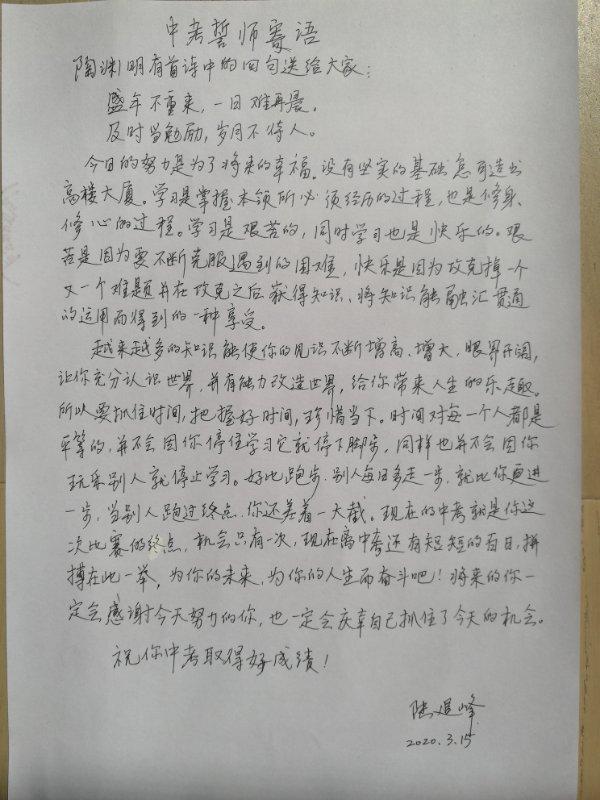 中考誓师寄语
陶渊明有首诗中的四句送给大家：
盛年不重来，一日难再晨。
及时当勉励，岁月不待人。
今日的努力是为了将来的幸福。没有坚实的基础怎可造出
高楼大厦。学习是掌握本领所必须经历的过程，也是修身、
修心的过程。学习是艰苦的，同时学习也是快乐的。艰
苦是因为要不断克服遇到的困难，快乐是因为攻克掉一个
又一个难题并在攻克之后获得知识、将知识能融汇贯通
的运用而得到的一种享受。
越来越多的知识能使你的见识不断增高、增大，眼界开阔，
让你充分认识世界，并有能力改造世界，给你带来人生的乐趣。
所以要抓住时间，把握好时间，珍惜当下。时间对每一个人都是
平等的，并不会因你停住学习它就停下脚步，同样也并不会因你
玩乐别人就停止学习。好比跑步，别人每日多走一步，就比你更进
一步，当别人跑过终点，你还差着一大截。现在的中考就是你这
次比赛的终点，机会只有一次，现在离中考还有短短的百日，拼
搏在此一举，为你的未来，为你的人生而奋斗吧！将来的你一
定会感谢今天努力的你，也一定会庆幸自己抓住了今天的机会。
祝你中考取得好成绩！
陆峰
2020.3.15